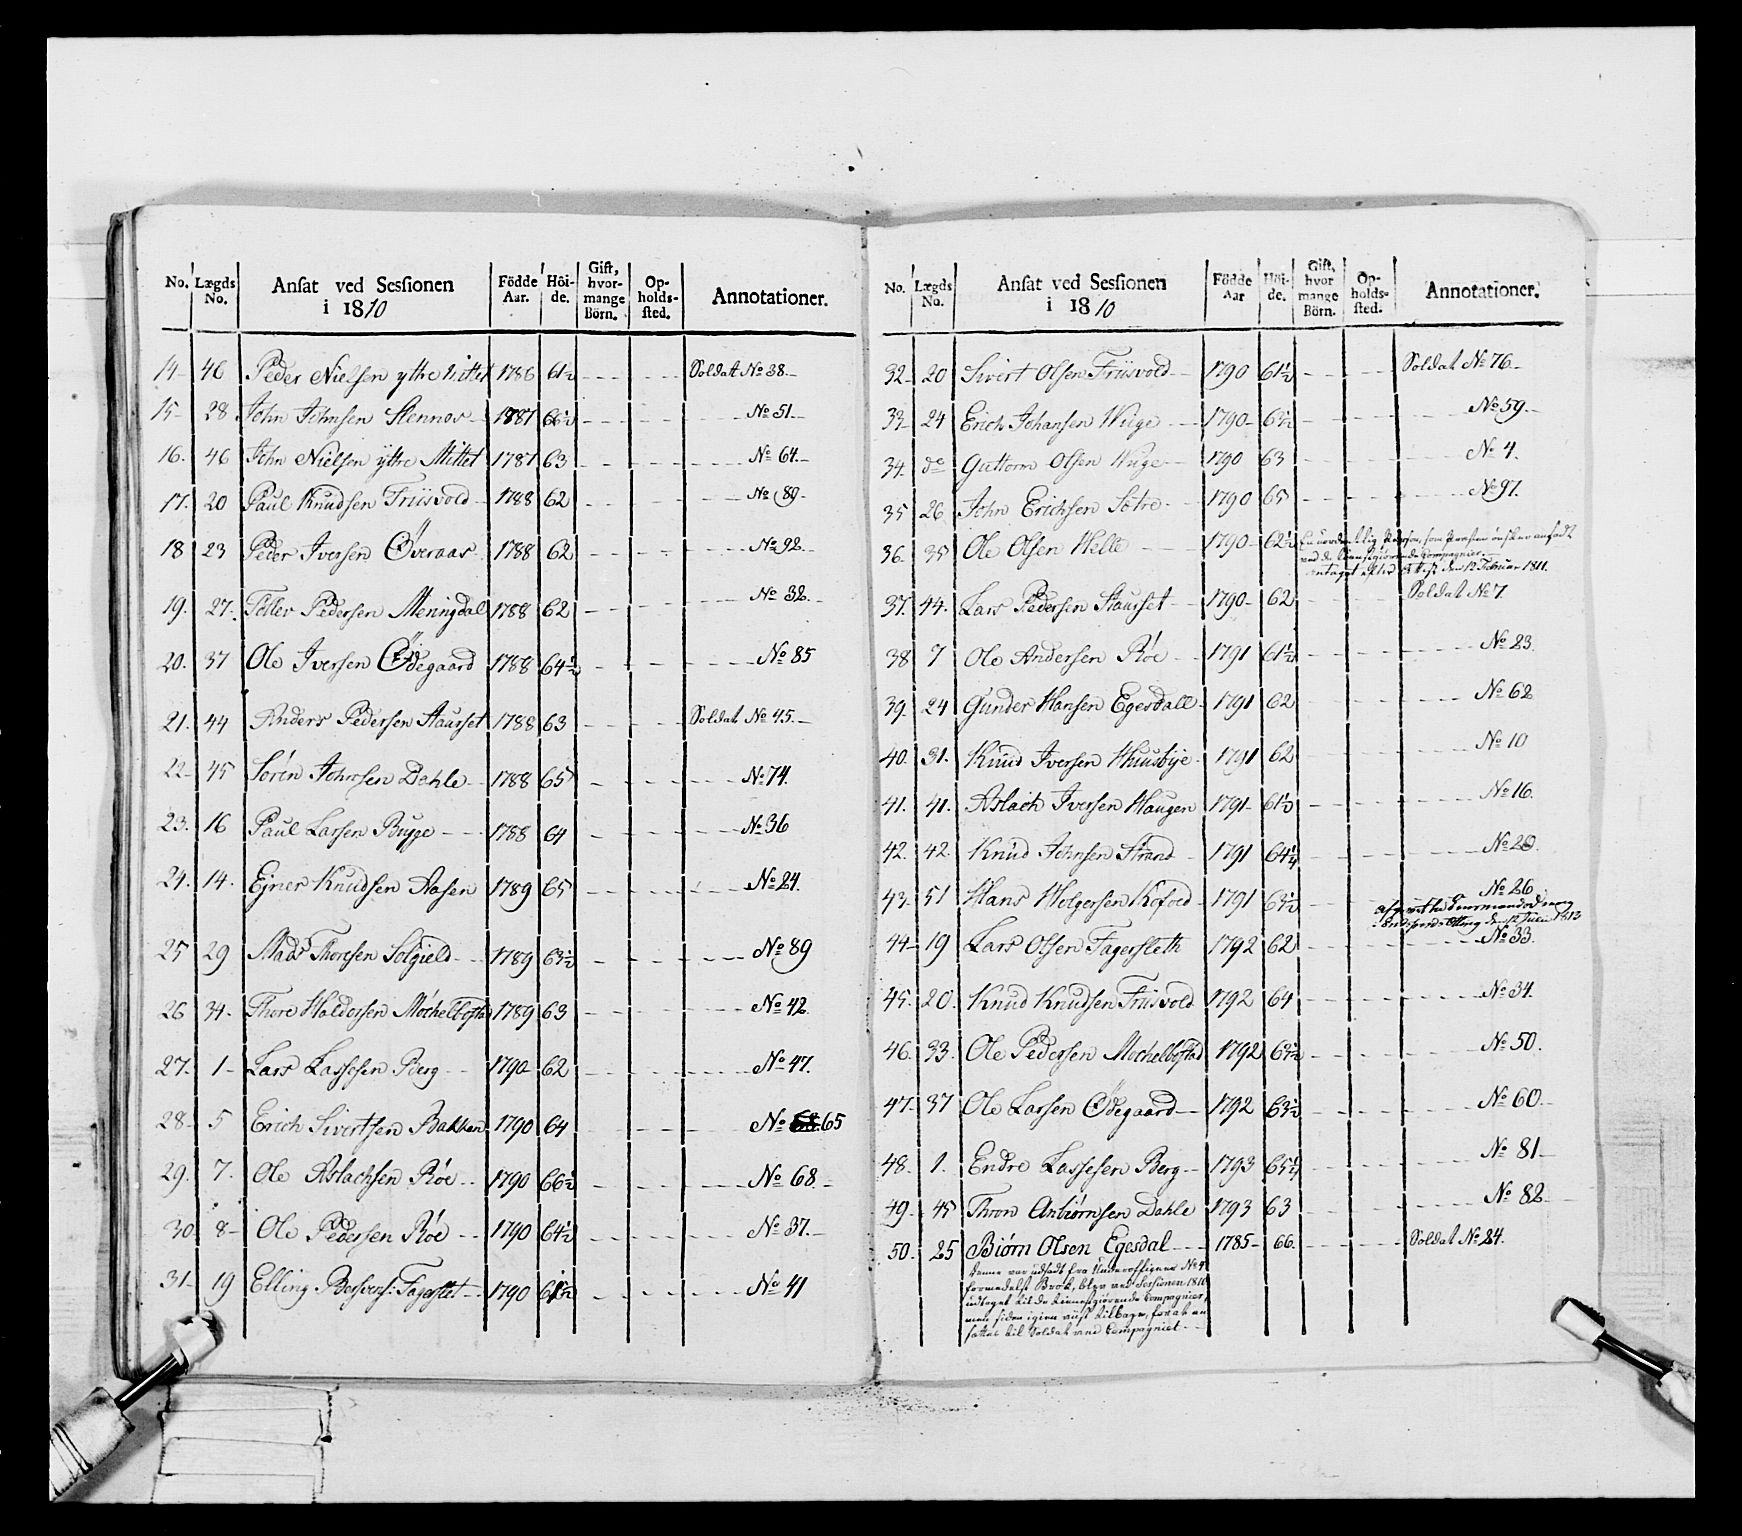 No. Lægds No. Ansat ved Sessionen i 1810 Födde Aar. Höi-de. Gift, hvor-mange Börn. Op-holds-sted. Annotationer.
14 46 Peder Nielsen yttre Mittet 1786 61½ Soldat No 38.
15 28 John Johnsen Stennos 1787 66½ No 51.
16. 46 John Nielsen yttre Mittet 1787 63 No 64.
17. 20 Paul Knudsen Friisvold 1788 62 No 89.
18 23 Peder Iversen Øveraas 1788 62 No 92.
19. 27. Pedersen Meningdal 1788 62 No 32.
20. 37 Ole Iversen Ødegaard 1788 64½ No 85
21. 44 Anders Pedersen Staurset 1788 63 Soldat No 45.
22 45 Sørin Johnsen Dahle 1788 65 No 74.
23. 16 Paul Larsen Bugge 1788 64 No 36
24. 14. Ejner Knudsen Aasen 1789 65 No 24.
25 29 Mads Thoresen Solgield 1789 63½ No 89
26 34. Thore Haldorsen 1789 63 No 42.
27. 1 Lars Lassesen Berg 1790 62 No 47.
28 5 Erich Sivertsen Bakken 1790 64 No 65
29. 7. Ole Aslachsen Røe 1790 66½ No 68.
30 8 Ole Pedersen Røe 1790 64½ No 37.
31 19 Elling Fagerslet 1790 No 41
No. Lægds No. Ansat ved Sessionen i 1810 Födde Aar Höi-de. Gift, hvor mange Börn. Op-holds-sted. Annotationer.
32 20 Sivert Olsen Friisvold 1790 61½ Soldat No 76
33 24 Erich Johansen Wuge 1790 63½ No 59.
34. do Guttorm Olsen Wuge 1790 63 No 4.
35 26 John Erichsen Sotre 1790 65 No 97.
36. 35 Ole Olsen Helle 1790 62½ den 12 Februar 1811.
37. 44. Lars Pedersen Staurset 1790 62 Soldat No 7.
38 7 Ole Andersen Røe 1791 61½ No 23.
39. 24 Gunder Hansen Egesdall 1791 62 No 62
40. 31. Knud Iversen Huusbye 1791 62 No 10
41. 41. Aslach Iversen Haugen 1791 61½ No 16.
42. 42 Knud Johnsen Strand 1791 64¼ No 20.
43. 51 Hans Holgersen Kofoed 1791 63½ No 26
44 19 Lars Olsen Fagersleth 1792 62 No 33.
45. 20. Knud Knudsen Friisvold 1792 64 No 34.
46. 33. Ole Pedersen Mochelbostad 1792 63½ No 50.
47. 37 Ole Larsen Ødegaard 1792 63½ No 60.
48. 1. Endre Lassesen Berg 1793 65½ No 81
49. 45 Thron Anbiørnsen Dahle 1793 63 No 82
50. 25 Biørn Olsen Egesdal 1785 66. Soldat No 24.
Denne var udsadt fra Underofficeer No 4
formedelst Brok, blev ved Sessionen 1810
udtaget til de tienestgiørende Compagnier,
men siden igien viist tilbage, for at an
sættes til Soldat ved Compagniet.